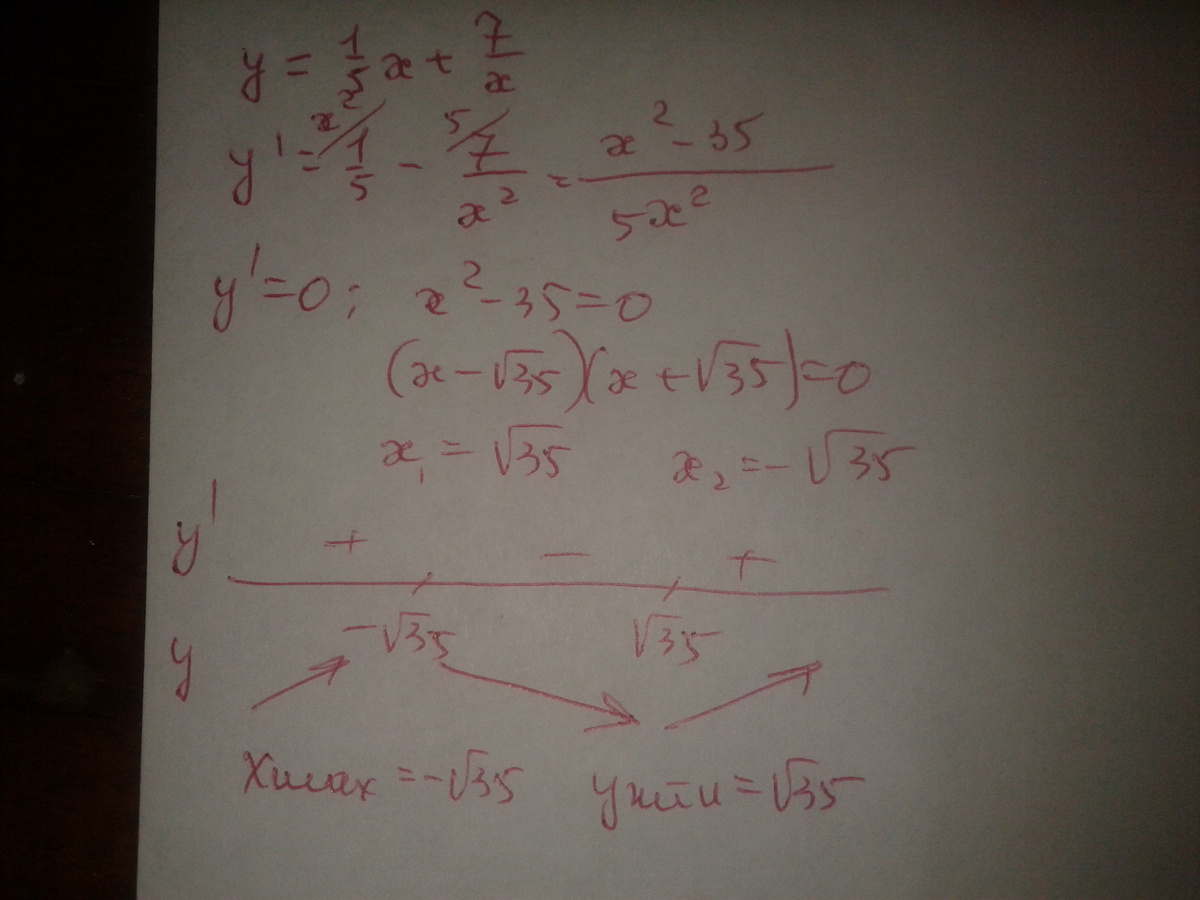 y = 1/5 x + 7/x
y' = x²/ 1/5 - 5/ 7/x² = (x² - 35)/(5x²)
y' = 0; x² - 35 = 0
(x - √35)(x + √35) = 0
x₁ = √35 x₂ = - √35
y' + - +
-√35 √35
y
Xmax = -√35 ymin = √35